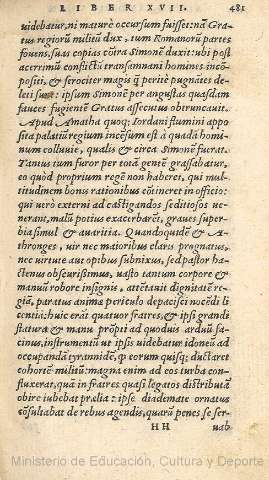 LIBER XVII. 481
uidebatur, ni maturè occursum fuisset: nã Gra-
tus regiorũ militũ dux, tum Romanorũ partes
fouens, suas copias cõtra Simonē duxit: ubi post
acerrimũ conflictũ transamnani homines incõ-
positi, & ferociter magis q̃ peritè pugnātes de-
leti sunt: ipsum Simonē per angustas quasdam
fauces fugientē Gratus assecutus obtruncauit.
Apud Amatha quoq; Iordani flumini appo
sita palatiũ regium incēsum est à quadã homi-
num colluuie, qualis & circa Simonē fuerat.
Tantus tum furor per totã gentē grassabatur,
eo quòd proprium regē non haberet, qui mul-
titudinem bonus rationibus cõtineret in officio:
qui uerò externi ad castigandos seditosos ue-
nerant, malũ potius exacerbarēt, graues super-
bia simul & auaritia. Quandoquidē & A-
thronges, uir nec maioribus claris prognatus,
nec uirtute aut opibus subnixus, sed pastor ha-
ctenus obscurissimus, uasto tantum corpore &
manuũ robore insignis, attētauit dignitatē re-
giã, paratus anima periculo depacisci nocēdi li
centiã: huic erāt quatuor fratres, & ipsi grandi
statura & manu prõpti ad quoduis arduũ fa-
cinus, instrumentũ ut ipsis uidebatur idoneũ ad
occupandã tyrannidē, q̃ eorum quisq; ductaret
cohortē militũ: magna enim ad eos turba con-
fluxerat, quã in fratres quasi legatos distributã
obire iubebat prælia: ipse diademate ornatus
cõsultabat de rebus agendis, quarũ penes se ser-
HH uab
Ministerio de Educación, Cultura y Deporte